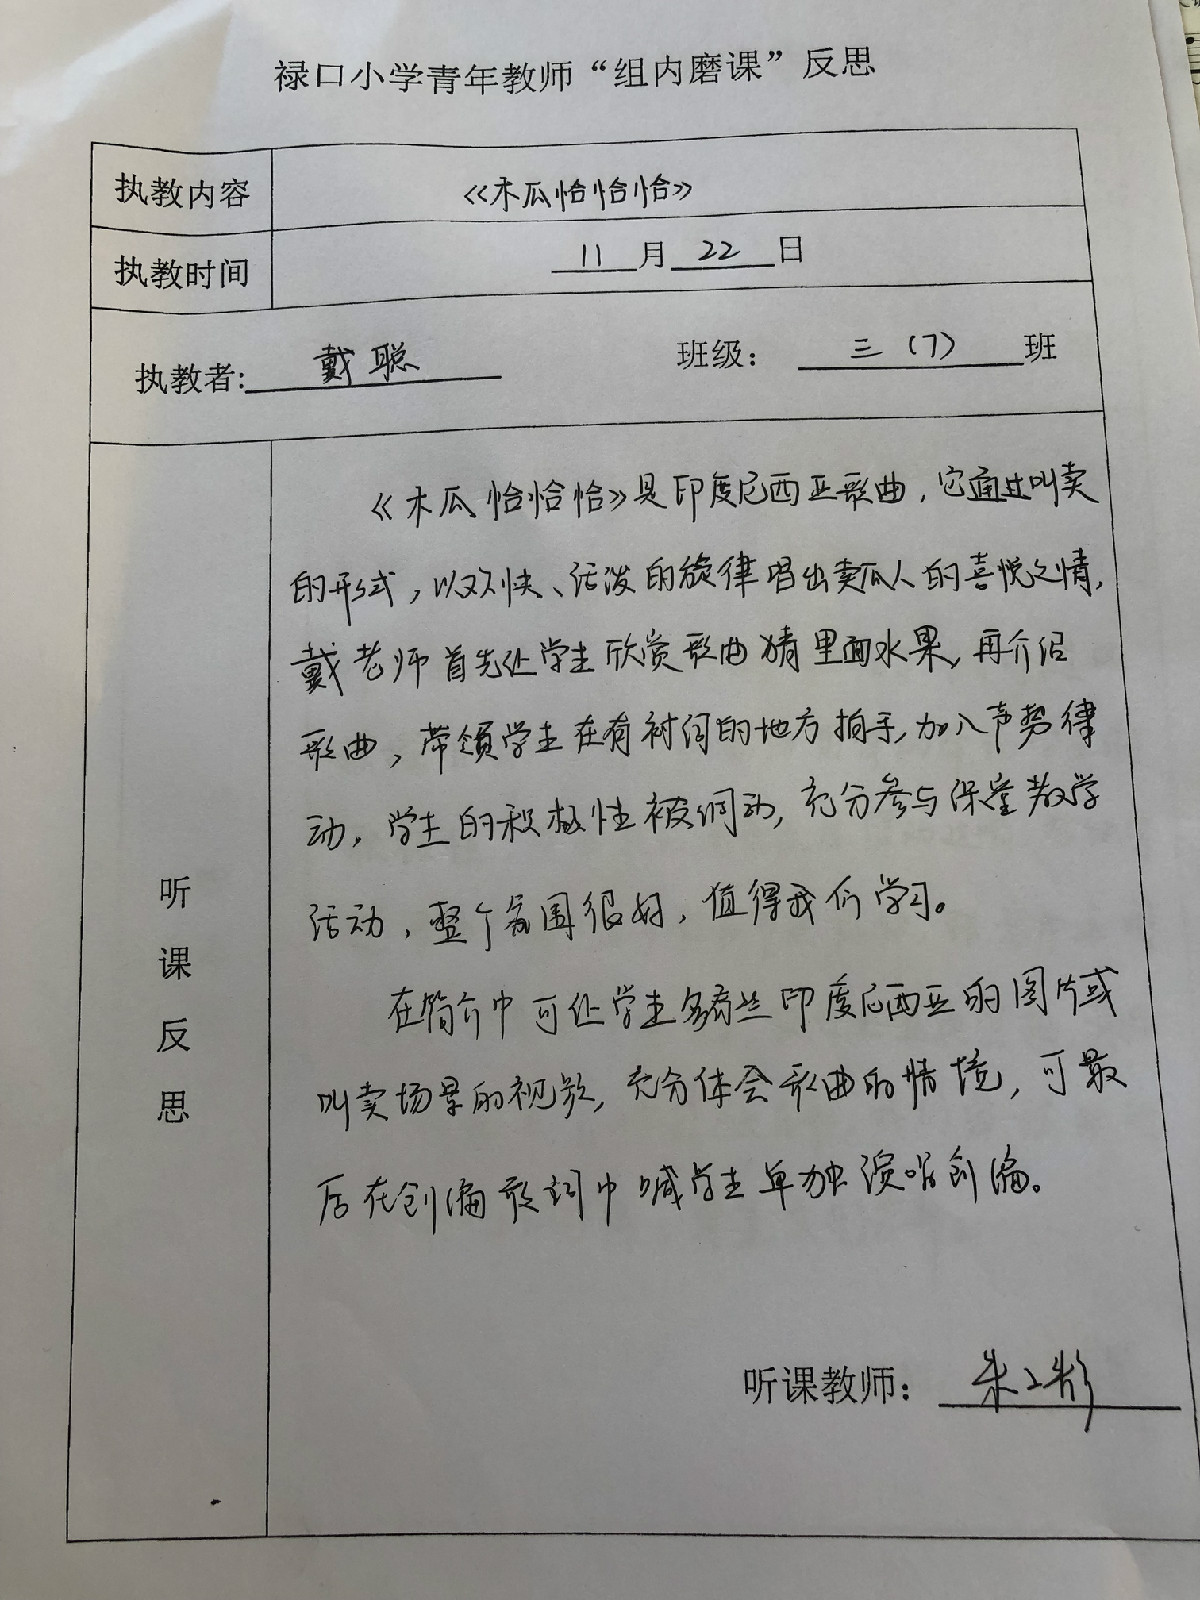 禄口小学青年教师“组内磨课”反思
执教内容 《木瓜恰恰恰》
执教时间 11月22日
执教者:戴聪 班级：三(7)班
听课反思
《木瓜恰恰恰》是印度尼西亚歌曲，它通过叫卖
的形式，以欢快、活泼的旋律唱出卖瓜人的喜悦之情，
戴老师首先让学生欣赏歌曲猜里面水果，再介绍
歌曲，带领学生在有衬词的地方拍手，加入声势律
动，学生的积极性被调动，充分参与课堂教学
活动，整个氛围很好，值得我们学习。
在简介中可让学生多看些印度尼西亚的图片或
叫卖场景的视频，充分体会歌曲的情境，可最
后在创编歌词中喊学生单独演唱创编。
听课教师：朱